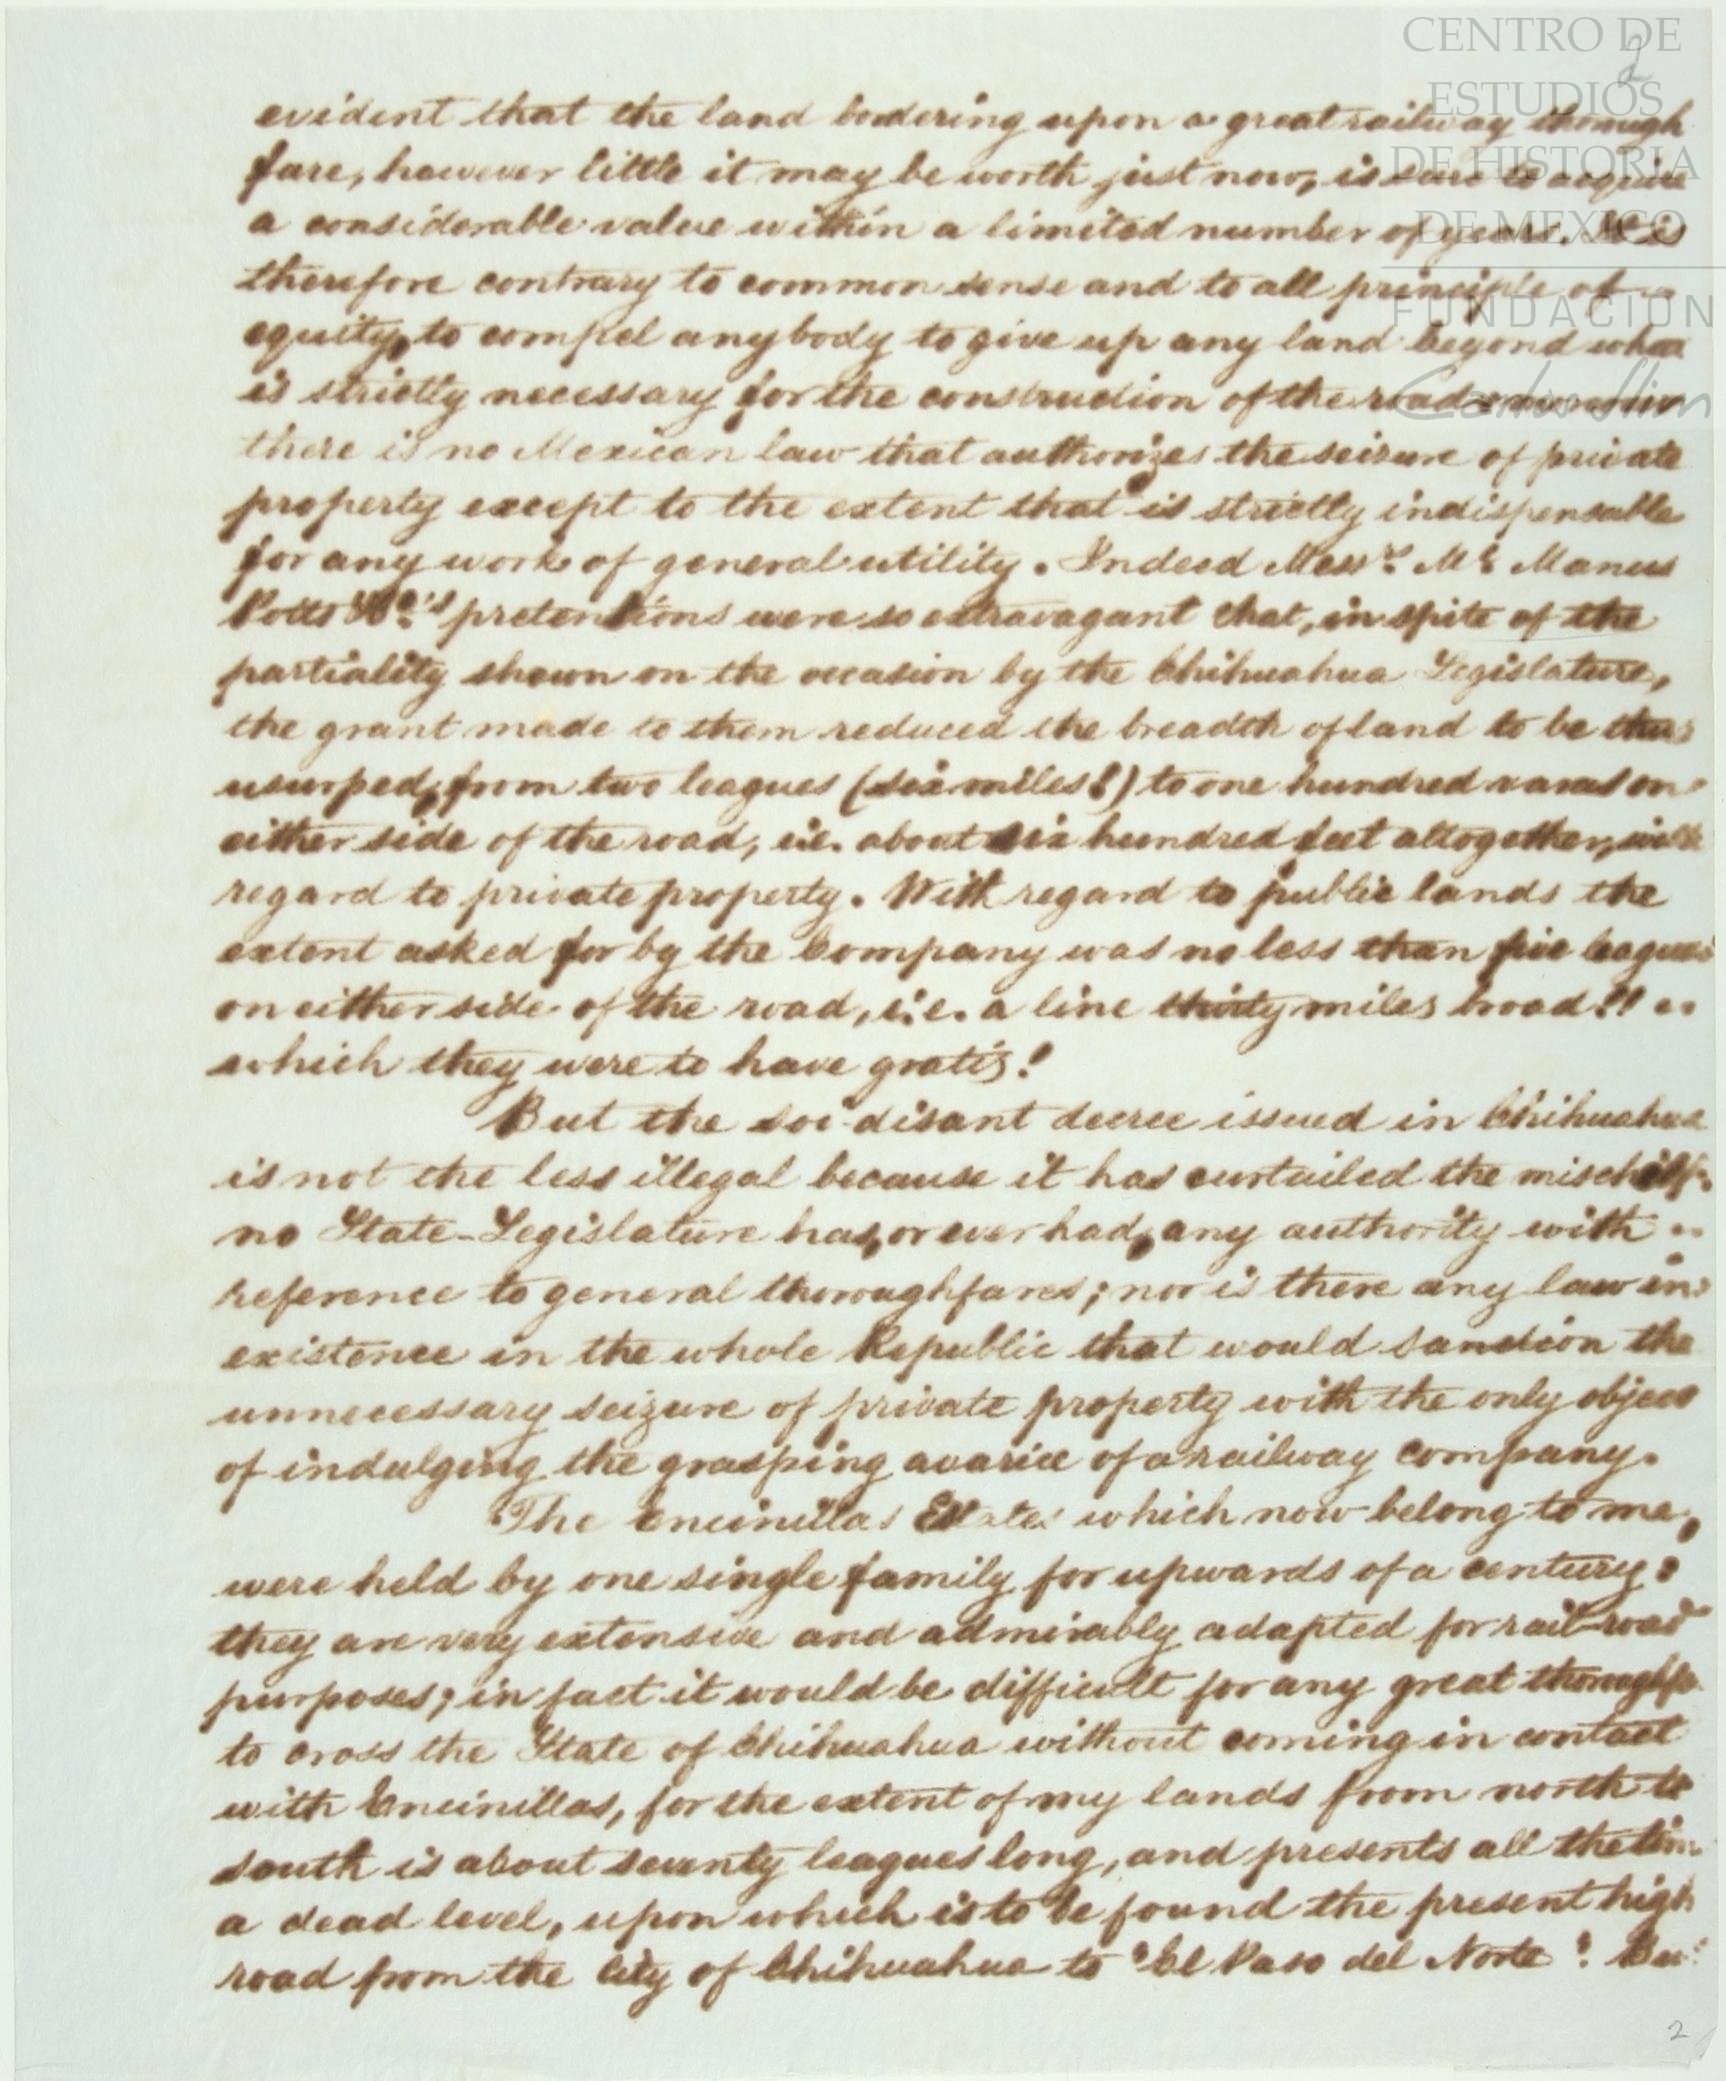 CENTRO DE
ESTUDIOS
DE HISTORIA
DE MEXICO
FUNDACION
Carlos Slim
2
evident that the land bordering upon a great railway thorough
fare, however little it may be worth just now, is sure to acquire
a considerable value within a limited number of years. It is
therefore contrary to common sense and to all principle of
equity, to compel anybody to give up any land beyond what
is strictly necessary for the construction of the road
there is no Mexican law that authorizes the seizure of private
property except to the extent that is strictly indispensable
for any work of general utility. Indeed Messrs. Mc. Manus
Potts & Co.'s pretentions were so extravagant that, in spite of the
partiality shown on the occasion by the Chihuahua Legislature,
the grant made to them reduced the breadth of land to be thus
usurped, from two leagues (six miles!) to one hundred varas on
either side of the road, i.e. about six hundred feet altogether, with
regard to private property. With regard to public lands the
extent asked for by the Company was no less than five leagues
on either side of the road, i.e. a line thirty miles broad!!
which they were to have gratis!
But the soi-disant decree issued in Chihuahua
is not the less illegal because it has curtailed the mischief:
no State-Legislature has, or ever had, any authority with
reference to general thoroughfares; nor is there any law in
existence in the whole Republic that would sanction the
unnecessary seizure of private property with the only object
of indulging the grasping avarice of a railway company.
The Encinillas Estates which now belong to me,
were held by one single family for upwards of a century:
they are very extensive and admirably adapted for rail-road
purposes; in fact it would be difficult for any great thoroughfa
to cross the State of Chihuahua without coming in contact
with Encinillas, for the extent of my lands from north to
south is about seventy leagues long, and presents all the
a dead level, upon which is to be found the present high
road from the City of Chihuahua to "El Paso del Norte". But
2